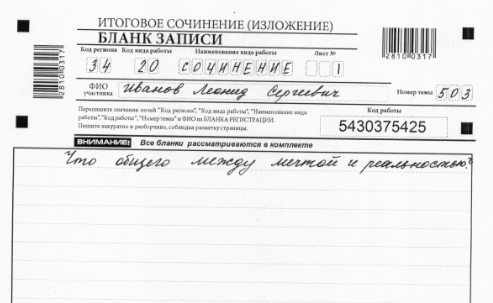 ИТОГОВОЕ СОЧИНЕНИЕ (ИЗЛОЖЕНИЕ)
БЛАНК ЗАПИСИ
Код региона Код вида работы Наименование вида работы Лист №
34 20 СОЧИНЕНИЕ 1
28100317
28100317
ФИО участника Иванов Леонид Сергеевич Номер темы 503
Перепишите значения полей "Код региона", "Код вида работы", "Наименование вида
работы", "Код работы", "Номер темы" и ФИО из БЛАНКА РЕГИСТРАЦИИ.
Пишите аккуратно и разборчиво, соблюдая разметку страницы.
Код работы
5430375425
ВНИМАНИЕ! Все бланки рассматриваются в комплекте
Что общего между мечтой и реальностью?